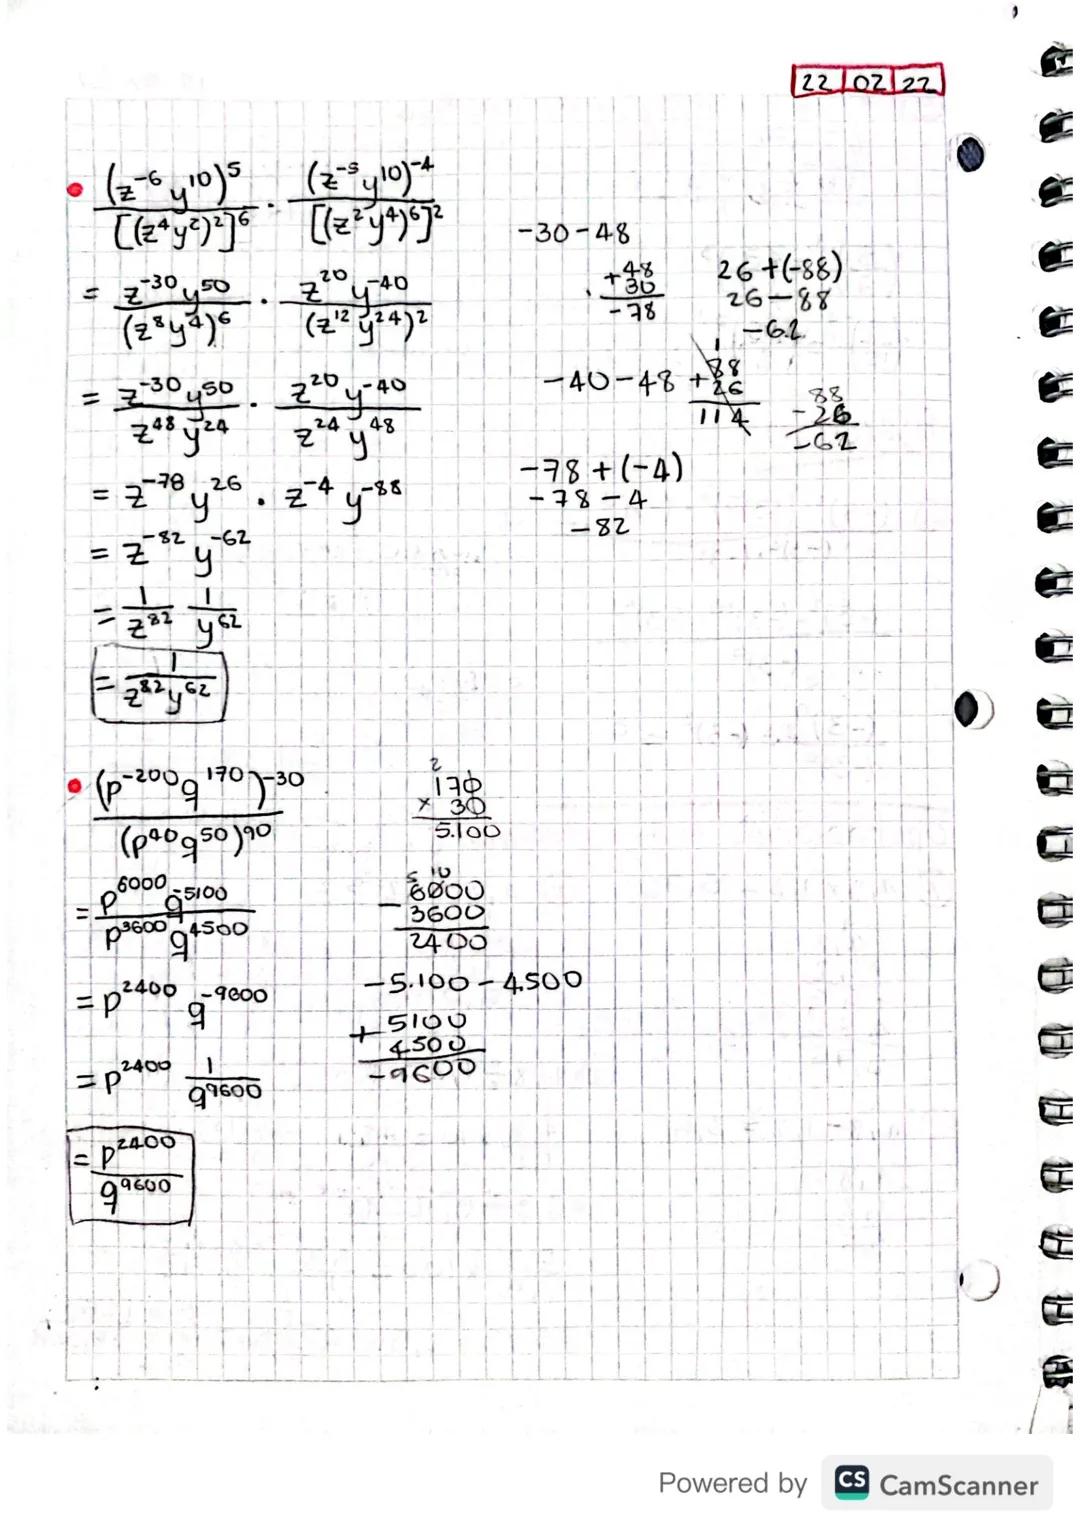 22 02 22
(z⁻⁶ y¹⁰)⁵ / [(z⁴y²)²]⁶ · (z⁻⁵ y¹⁰)⁻⁴ / [(z²y⁴)⁶]²
= z⁻³⁰ y⁵⁰ / (z⁸y⁴)⁶ · z²⁰ y⁻⁴⁰ / (z¹² y²⁴)²
= z⁻³⁰ y⁵⁰ / z⁴⁸ y²⁴ · z²⁰ y⁻⁴⁰ / z²⁴ y⁴⁸
= z⁻⁷⁸ y²⁶ · z⁻⁴ y⁻⁸⁸
= z⁻⁸² y⁻⁶²
= 1/z⁸² 1/y⁶²
= 1 / z⁸² y⁶²
-30-48
+48
30
-78
26+(-88)
26-88
-62
-40-48
1
+88
26
114
88
-26
-62
-78+(-4)
-78-4
-82
(p⁻²⁰⁰ q¹⁷⁰)⁻³⁰ / (p⁴⁰ q⁵⁰)⁹⁰
= p⁶⁰⁰⁰ q⁻⁵¹⁰⁰ / p³⁶⁰⁰ q⁴⁵⁰⁰
= p²⁴⁰⁰ q⁻⁹⁶⁰⁰
= p²⁴⁰⁰ 1/q⁹⁶⁰⁰
= p²⁴⁰⁰ / q⁹⁶⁰⁰
2
170
x 30
5.100
5 10
6000
- 3600
2400
-5.100-4500
5100
+ 4500
-9600
Powered by CS CamScanner